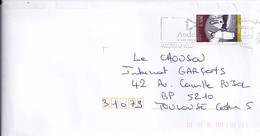 Le CAOUSOU
Internat GARÇONS
42 Av. Camille PUJOL
BP 5210
31079 TOULOUSE Cedex 5